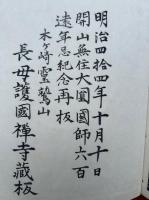 明治四拾四年十月十日
開山無住大圓國師六百
遠年忌紀念再板
木ケ崎靈鷲山
長母護國禪寺藏板